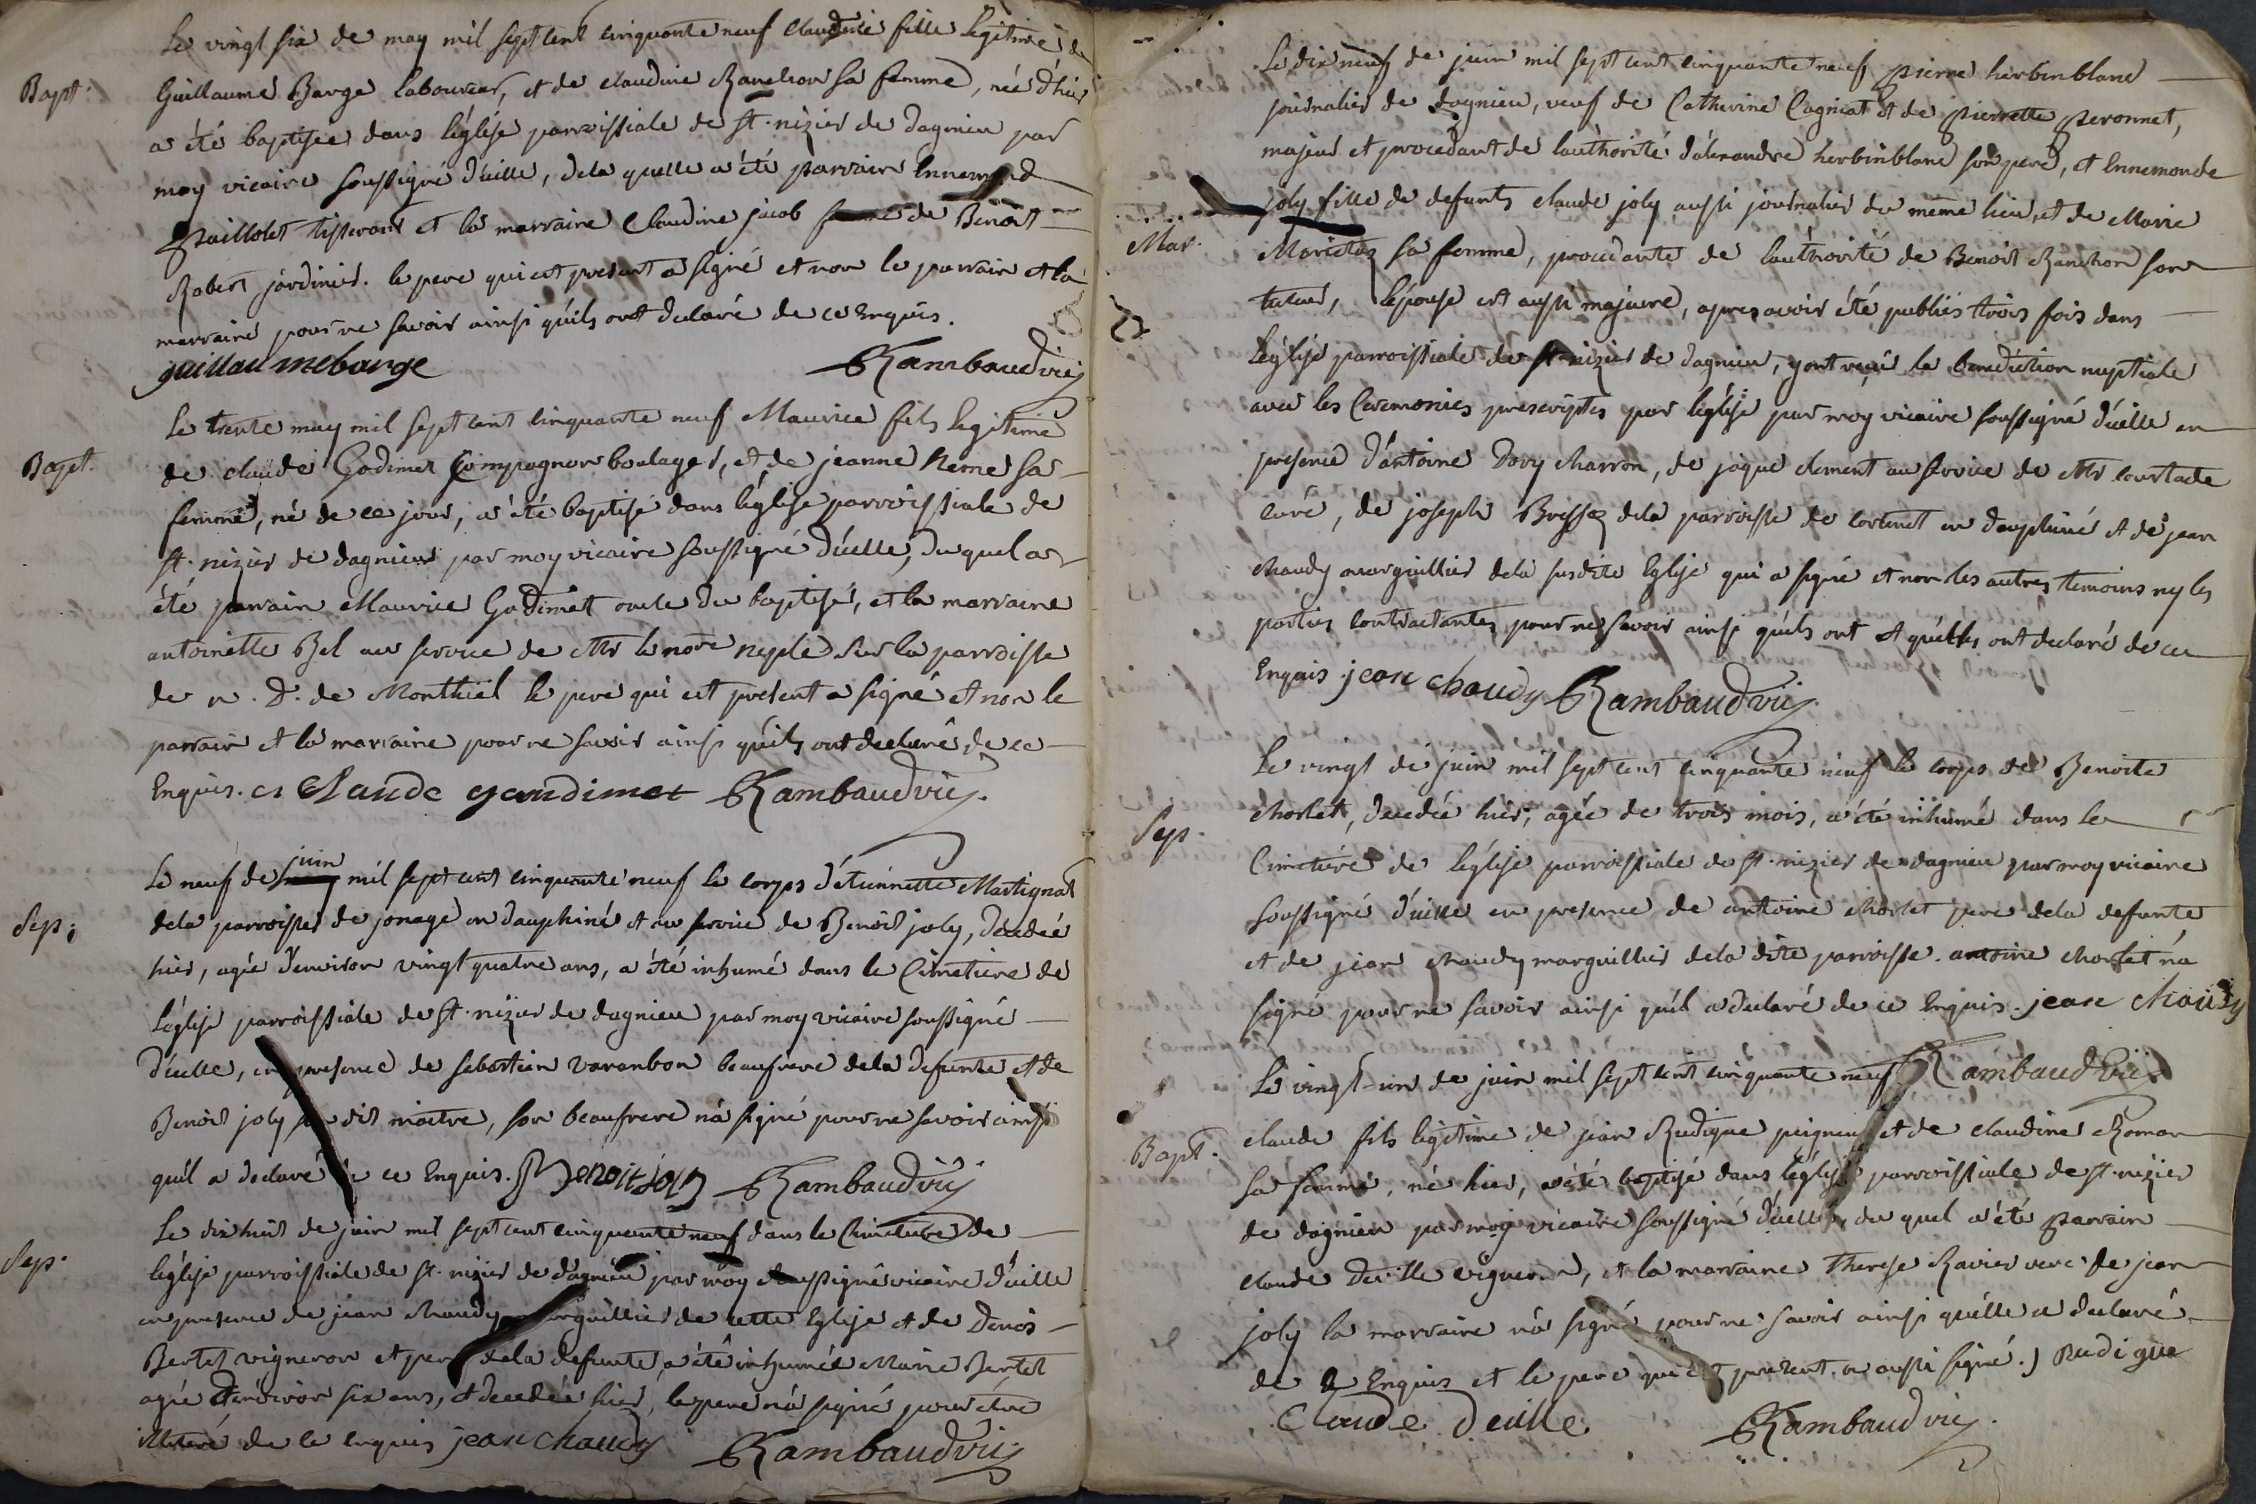 Le vingt six de may mil sept cent cinquante neuf Claudine fille legitime de
Bapt.
Guillaume Barge laboureur, et de claudine Ranchon sa femme, née d'hier
a été baptisée dans l'église parroissiale de st. nizier de dagnieu par
moy vicaire soussigné d'icelle, de la quelle a été parrain Ennemond
Paillolet tisserant et la marraine Claudine jacob femme de Benoit
Robert jardinier. le pere qui est present a signé et non le parrain et la
marraine pour ne savoir ainsi qu'ils ont declaré de ce Enquis.
guillaume barge Rambaud vic.
Le trente may mil sept cent cinquante neuf Maurice fils legitime
Bapt.
de claude Godimet compagnon boulager, et de jeanne Neme sa
femme, né de ce jour, a été baptisé dans l'église parroissiale de
st. nizier de dagnieu par moy vicaire soussigné d'icelle, du quel a
été parrain Maurice Godimet oncle du baptisé, et la marraine
antoinette Bel au service de Mr le nore neple sur la parroisse
de n. D. de Montluel le pere qui est present a signé et non le
parrain et la marraine pour ne savoir ainsi qu'ils ont declaré de ce
Enquis. Claude gaudimet Rambaud vic.
Le neuf de juin mil sept cent cinquante neuf le corps d'étiennette Martignat
Sep.
de la parroisse de jonage en dauphiné et au service de Benoit joly, decedée
hier, agée d'environ vingt quatre ans, a été inhumé dans le Cimetiere de
l'église parroissiale de st. nizier de dagnieu par moy vicaire soussigné
d'icelle, en presence de sebastien varambon beaufrere de la defunte et de
Benoit joly son dit maitre, son beaufrere n'a signé pour ne savoir ainsi
qu'il a declaré de ce Enquis. Benoit joly Rambaud vic.
Le dix huit de juin mil sept cent cinquante neuf dans le Cimetiere de
Sep.
l'église parroissiale de st. nizier de dagnieu par moy soussigné vicaire d'icelle
en presence de jean Chaudy marguillier de cette Eglise et de Denis
Bertet vigneron et pere de la defunte, a été inhumée Marie Bertet
agée d'environ six ans, et decedée hier, le pere n'a signé pour être
illiteré de ce enquis jean chaudy Rambaud vic.
Le dix neuf de juin mil sept cent cinquante neuf, pierre herbinblanc
journalier de dagnieu, veuf de Catherine Cagniat et de pierrette peronnet,
majeur et procedant de l'authorité d'alexandre herbinblanc son pere, et Ennemonde
joly fille de defunts claude joly aussi journalier du meme lieu, et de Marie
Mar.
sa femme, procedante de l'authorité de Benoit Ranchon son
tuteur, l'epouse est aussi majeure, apres avoir été publiés trois fois dans
l'église parroissiale de st. nizier de dagnieu, y ont reçu la benediction nuptiale
avec les Ceremonies prescriptes par l'église par moy vicaire soussigné d'icelle en
presence d'antoine Dory charron, de jaque clement au service de Mr courtade
curé, de joseph Brissoz de la parroisse de en dauphiné et de jean
chaudy marguillier de la susdite Eglise qui a signé et non les autres temoins ny les
parties contractantes pour ne savoir ainsi qu'ils ont et qu'elles ont declaré de ce
Enquis. jean chaudy Rambaud vic.
Le vingt de juin mil sept cent cinquante neuf le corps de Benoite
chorlet, decedée hier, agée de trois mois, a été inhumé dans le
Sep.
Cimetiere de l'église parroissiale de st. nizier de dagnieu par moy vicaire
soussigné d'icelle en presence de antoine chorlet pere de la defunte
et de jean chaudy marguillier de la dite parroisse. antoine chorlet n'a
signé pour ne savoir ainsi qu'il a declaré de ce Enquis. jean chaudy
Rambaud vic.
Le vingt-un de juin mil sept cent cinquante neuf
Bapt.
claude fils legitime de jean Rudigue peigneur et de claudine Roman
sa femme, né hier, a été baptisé dans l'église parroissiale de st. nizier
de dagnieu par moy vicaire soussigné d'icelle, du quel a été parrain
claude Deville vigneron, et la marraine Therese Ravier veuve de jean
joly la marraine n'a signé pour ne savoir ainsi qu'elle a declaré
de ce Enquis et le pere qui est present a aussi signé. J Rudigue
Claude Deville Rambaud vic.